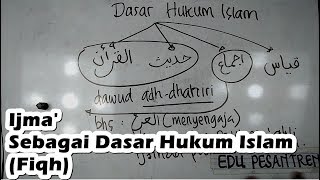 Dasar Hukum Islam
قياس اجماع حديث القرأن
dawud adh-dhahiri
bhs : العزم (menyengaja)
Ijma'
Sebagai Dasar Hukum Islam
(Fiqh)
EDU PESANTREN